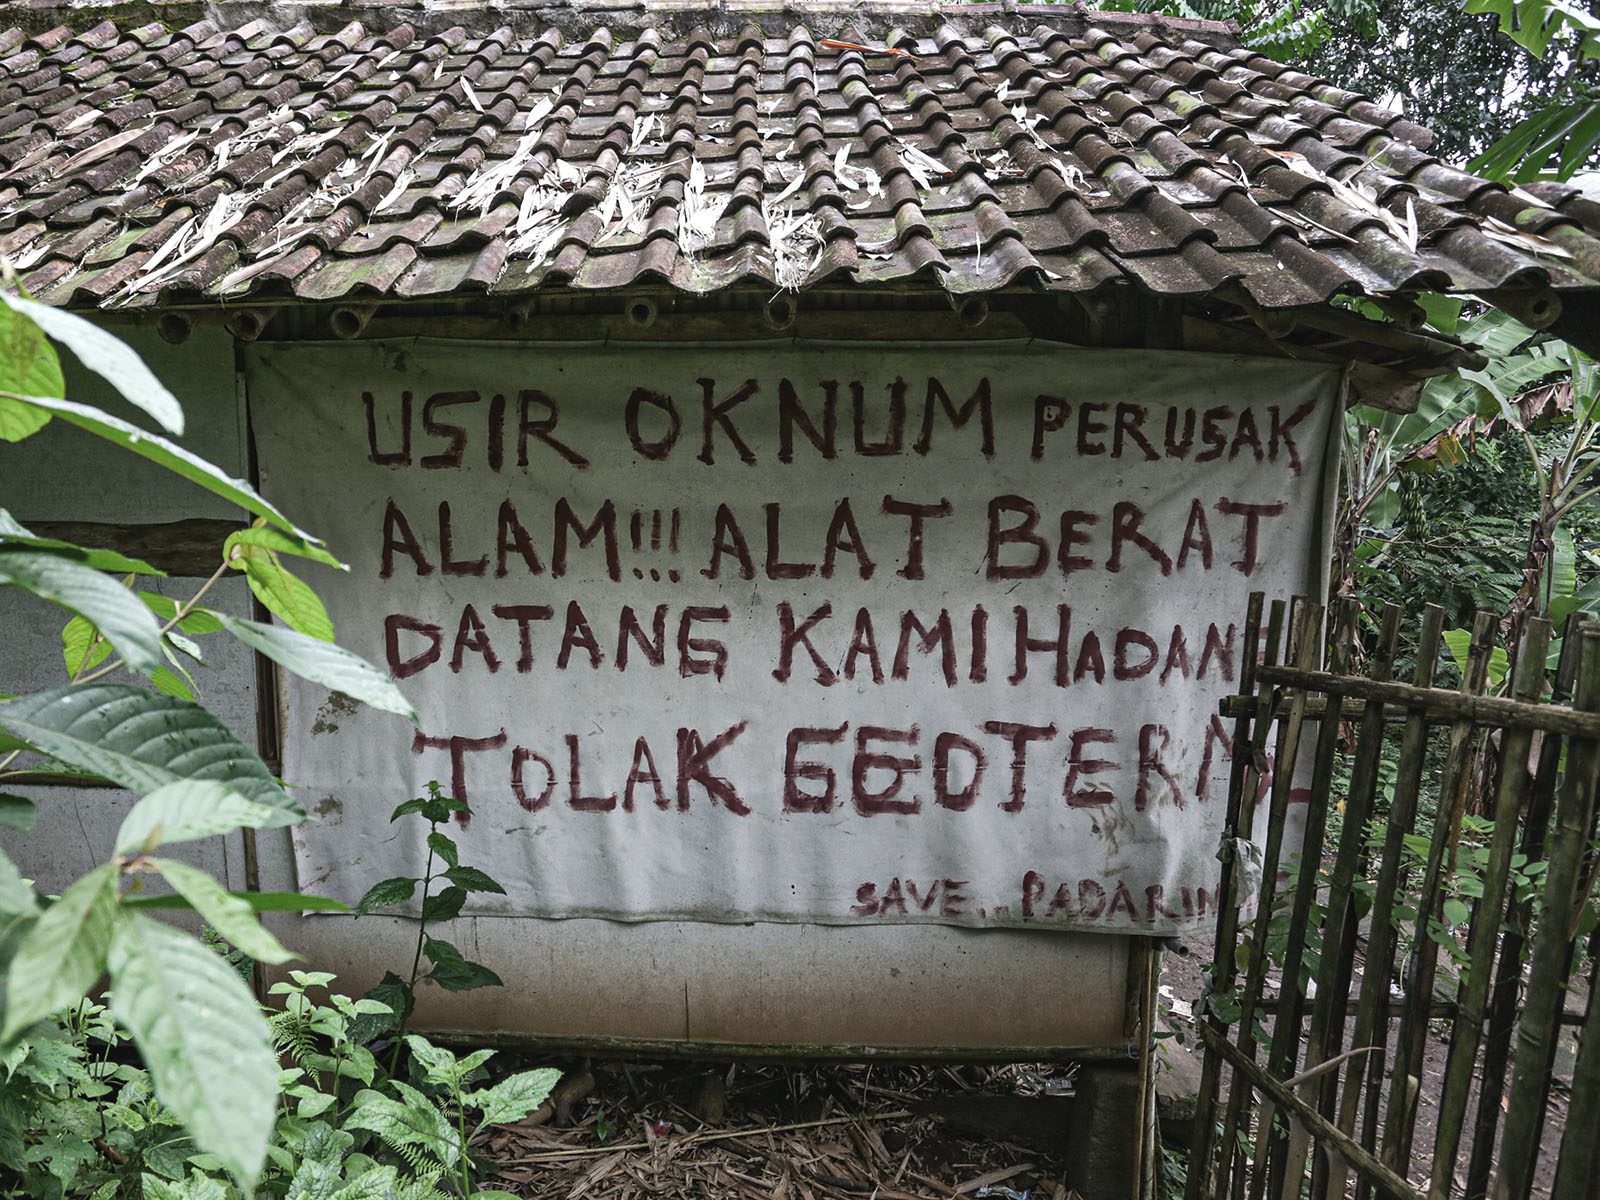 USIR OKNUM PERUSAK
ALAM!!! ALAT BERAT
DATANG KAMI HADANG
TOLAK GEOTERMAL
SAVE... PADARIN